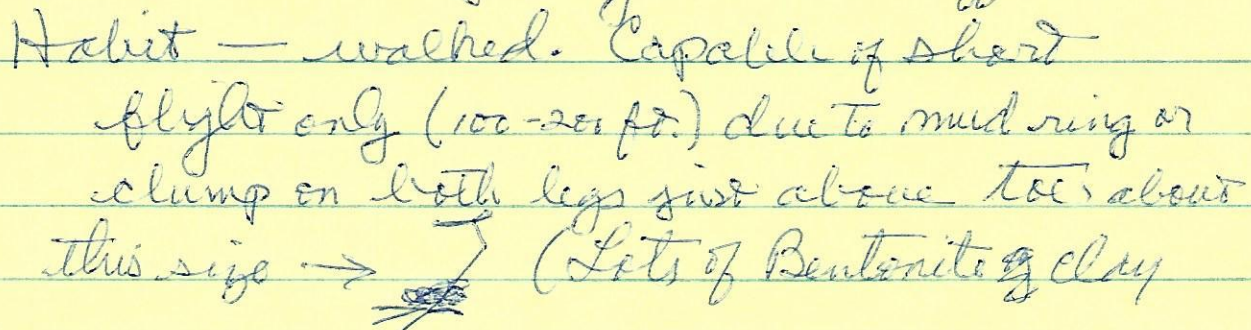 Habit — walked. Capable of short
flight only (100-200 ft.) due to mud ring or
clump on both legs just above toes about
this size → (Lots of Bentonite & clay